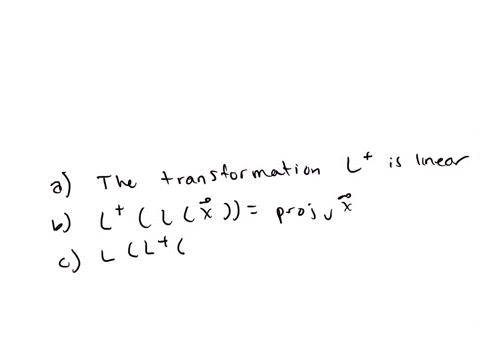 a) The transformation L⁺ is linear
b) L⁺ ( L ( x⃗ )) = proj_V x⃗
c) L ( L⁺ (